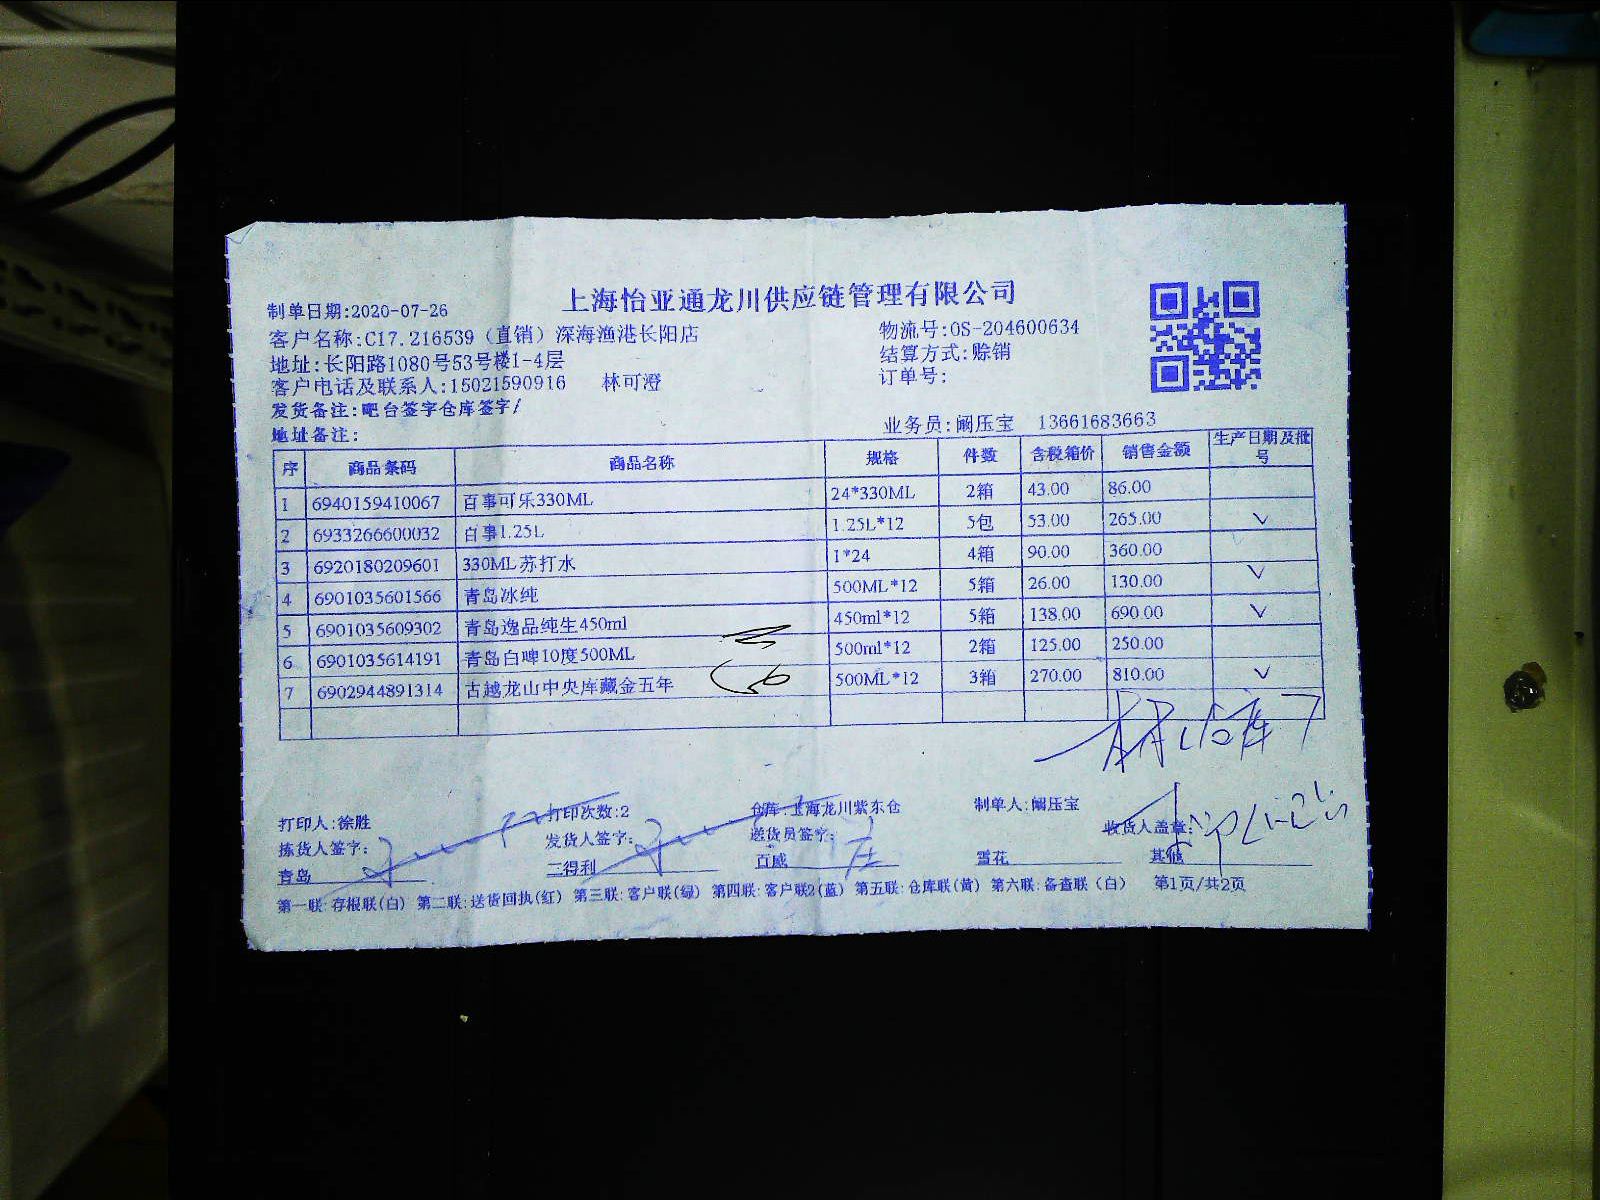 上海怡亚通龙川供应链管理有限公司
制单日期:2020-07-26
客户名称:C17.216539（直销）深海渔港长阳店 物流号:OS-204600634
地址:长阳路1080号53号楼1-4层 结算方式:赊销
客户电话及联系人:15021590916 林可澄 订单号:
发货备注:吧台签字仓库签字/
地址备注: 业务员:阚压宝 13661683663
序 商品条码 商品名称 规格 件数 含税箱价 销售金额 生产日期及批号
1 6940159410067 百事可乐330ML 24*330ML 2箱 43.00 86.00
2 6933266600032 百事1.25L 1.25L*12 5包 53.00 265.00
3 6920180209601 330ML苏打水 1*24 4箱 90.00 360.00
4 6901035601566 青岛冰纯 500ML*12 5箱 26.00 130.00
5 6901035609302 青岛逸品纯生450ml 450ml*12 5箱 138.00 690.00
6 6901035614191 青岛白啤10度500ML 500ml*12 2箱 125.00 250.00
7 6902944891314 古越龙山中央库藏金五年 500ML*12 3箱 270.00 810.00
打印人:徐胜 打印次数:2 仓库:上海龙川紫东仓 制单人:阚压宝
拣货人签字: 发货人签字: 送货员签字: 收货人盖章:
青岛 三得利 百威 雪花 其他
第一联:存根联(白) 第二联:送货回执(红) 第三联:客户联(绿) 第四联:客户联2(蓝) 第五联:仓库联(黄) 第六联:备查联(白) 第1页/共2页